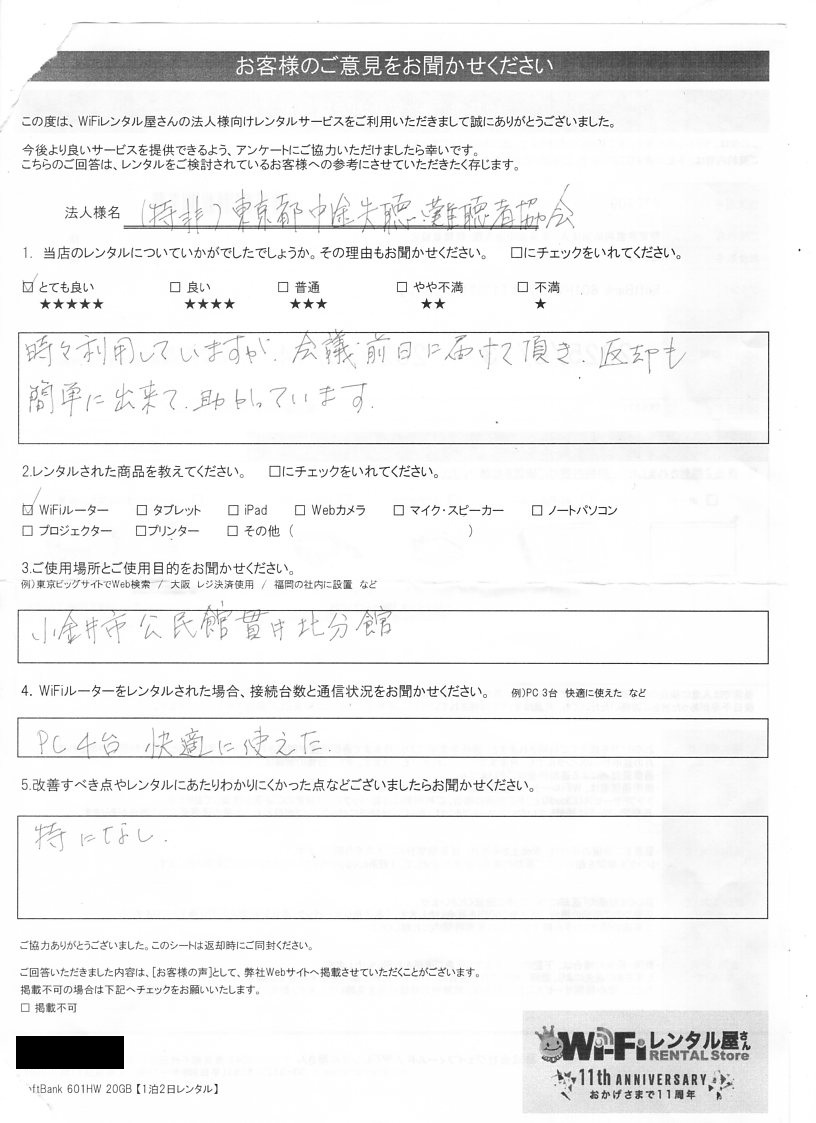 お客様のご意見をお聞かせください
この度は、WiFiレンタル屋さんの法人様向けレンタルサービスをご利用いただきまして誠にありがとうございました。
今後より良いサービスを提供できるよう、アンケートにご協力いただけましたら幸いです。
こちらのご回答は、レンタルをご検討されているお客様への参考にさせていただきたく存じます。
法人様名 (特非)東京都中途失聴・難聴者協会
1. 当店のレンタルについていかがでしたでしょうか。その理由もお聞かせください。 □にチェックをいれてください。
☑ とても良い □ 良い □ 普通 □ やや不満 □ 不満
★★★★★ ★★★★ ★★★ ★★ ★
時々利用していますが、会議前日に届けて頂き、返却も
簡単に出来て、助かっています。
2.レンタルされた商品を教えてください。 □にチェックをいれてください。
☑ WiFiルーター □ タブレット □ iPad □ Webカメラ □ マイク・スピーカー □ ノートパソコン
□ プロジェクター □プリンター □ その他 ( )
3.ご使用場所とご使用目的をお聞かせください。
例)東京ビッグサイトでWeb検索 / 大阪 レジ決済使用 / 福岡の社内に設置 など
小金井市公民館貫井北分館
4. WiFiルーターをレンタルされた場合、接続台数と通信状況をお聞かせください。 例)PC 3台 快適に使えた など
PC 4台 快適に使えた.
5.改善すべき点やレンタルにあたりわかりにくかった点などございましたらお聞かせください。
特になし.
ご協力ありがとうございました。このシートは返却時にご同封ください。
ご回答いただきました内容は、[お客様の声]として、弊社Webサイトへ掲載させていただくことがございます。
掲載不可の場合は下記へチェックをお願いいたします。
□ 掲載不可
oftBank 601HW 20GB【1泊2日レンタル】
Wi-Fiレンタル屋さん
RENTAL Store
11th ANNIVERSARY
おかげさまで11周年